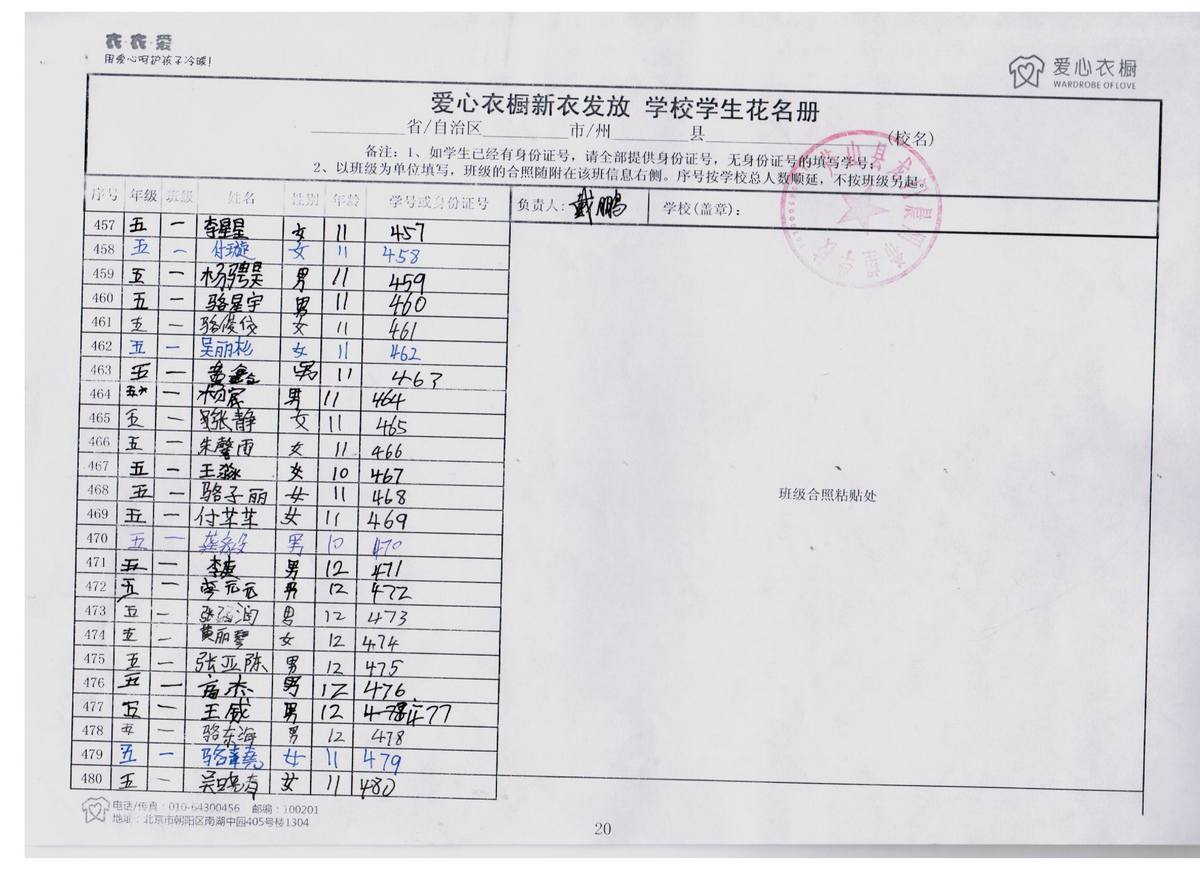 衣衣爱
用爱心呵护孩子冷暖!
爱心衣橱
WARDROBE OF LOVE
爱心衣橱新衣发放 学校学生花名册
省/自治区 市/州 县 (校名)
备注:1、如学生已经有身份证号,请全部提供身份证号,无身份证号的填写学号;
2、以班级为单位填写,班级的合照随附在该班信息右侧。序号按学校总人数顺延,不按班级另起。
序号 年级 班级 姓名 性别 年龄 学号或身份证号 负责人: 戴鹏 学校(盖章):
457 五 一 李星星 女 11 457
458 五 一 付璇 女 11 458
459 五 一 杨骋昊 男 11 459
460 五 一 骆星宇 男 11 460
461 五 一 骆俊 女 11 461
462 五 一 吴丽彬 女 11 462
463 五 一 黄鑫 男 11 463
464 五 一 杨宸 男 11 464
465 五 一 张静 女 11 465
466 五 一 朱馨雨 女 11 466
467 五 一 王淼 女 10 467
468 五 一 骆子丽 女 11 468
469 五 一 付芊芊 女 11 469
470 五 一 龚 男 10 470
471 五 一 李 男 12 471
472 五 一 元元 男 12 472
473 五 一 张润 男 12 473
474 五 一 黄丽琴 女 12 474
475 五 一 张亚陈 男 12 475
476 五 一 高杰 男 12 476
477 五 一 王威 男 12 478 477
478 五 一 骆东海 男 12 478
479 五 一 骆 女 11 479
480 五 一 吴晓春 女 11 480
班级合照粘贴处
电话/传真:010-64300456 邮编:100201
地址:北京市朝阳区南湖中园405号楼1304
20